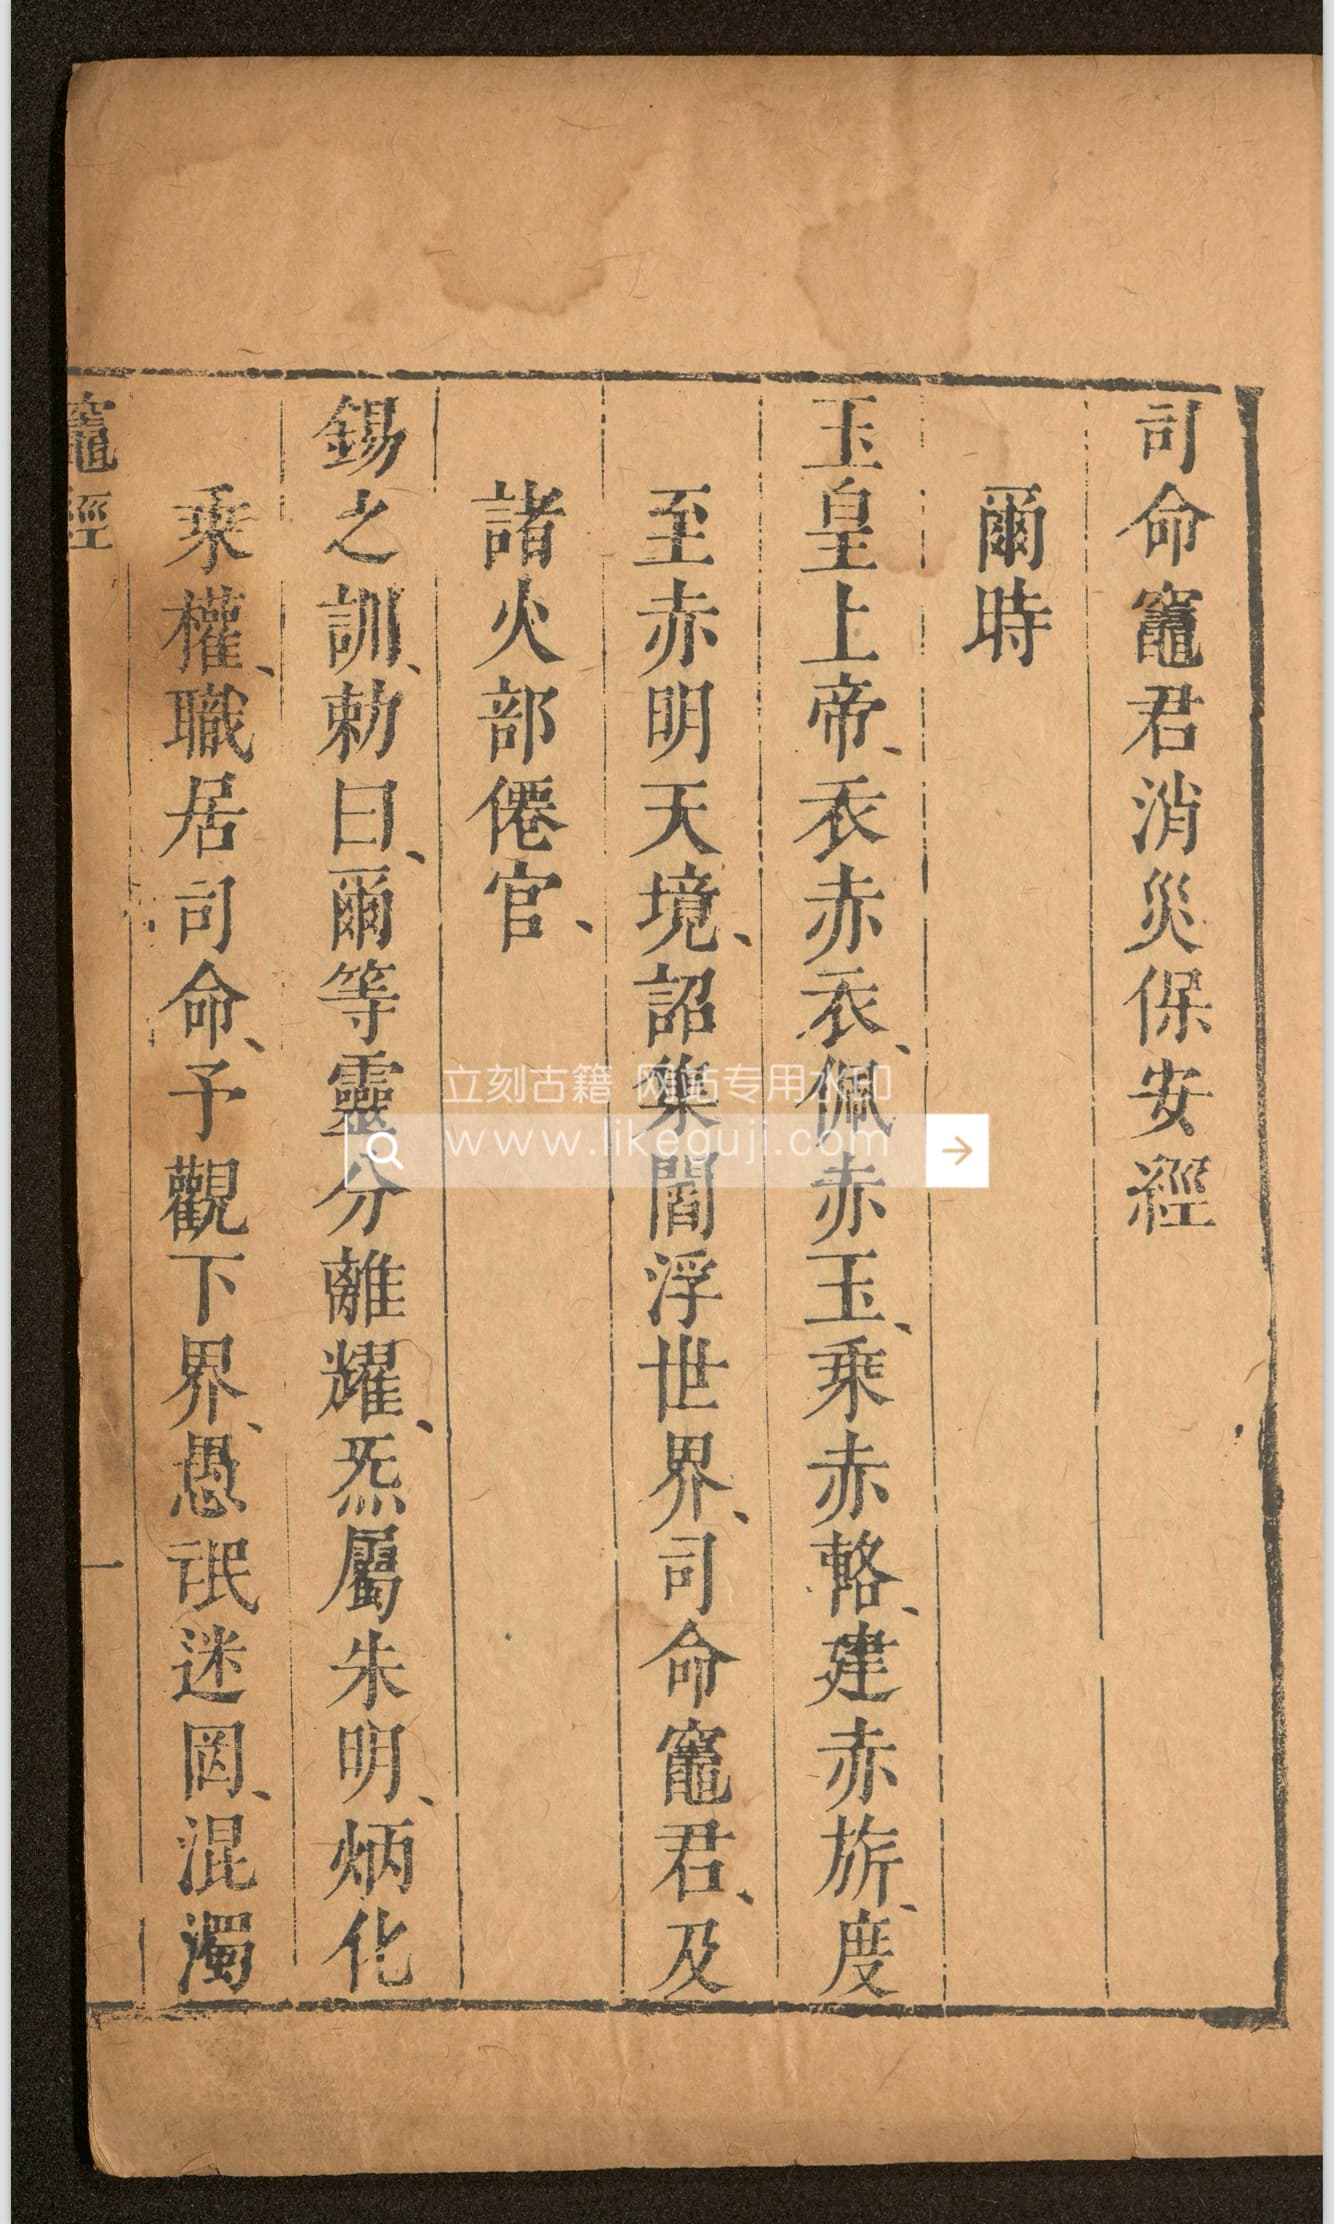 司命竈君消災保安經
爾時
玉皇上帝、衣赤衣、佩赤玉、乘赤輅、建赤旂、度
至赤明天境、詔集閻浮世界、司命竈君、及
諸火部僊官、
錫之訓、勅曰、爾等靈分離耀、炁屬朱明、炳化
乘權、職居司命、予觀下界、愚氓迷罔、混濁
竈經
一
立刻古籍 网站专用水印
www.likeguji.com